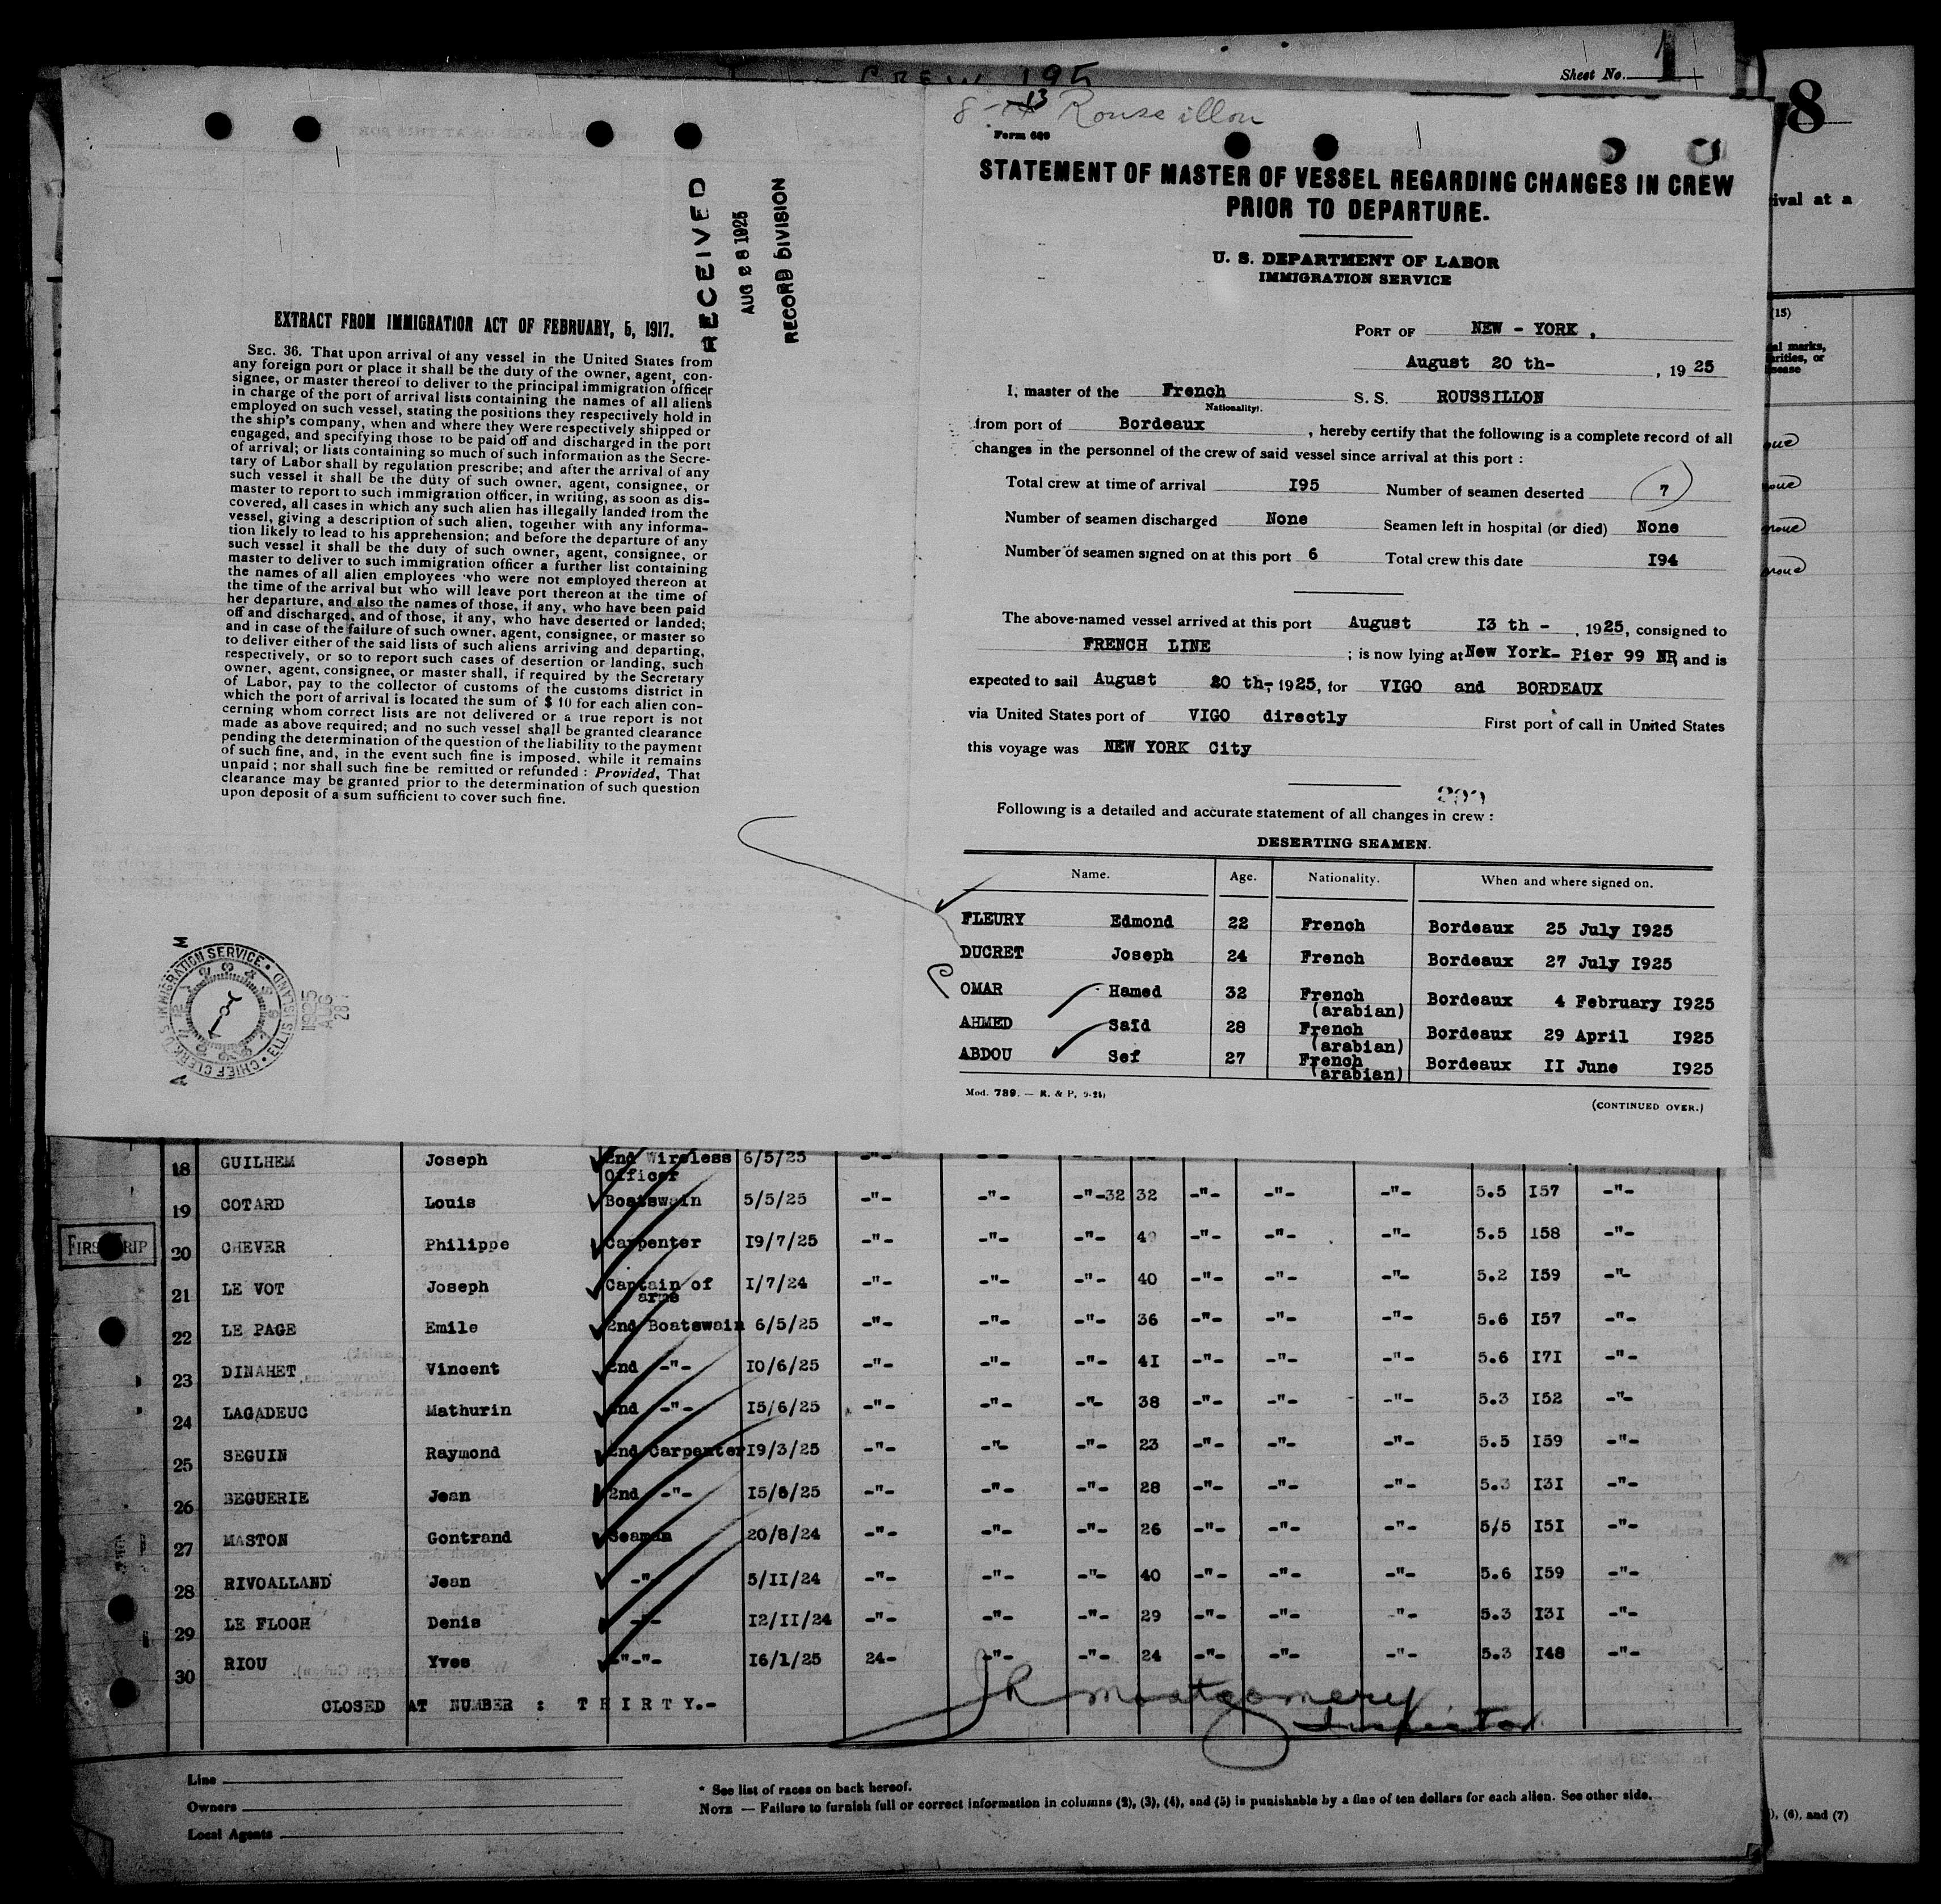 CREW 195
Sheet No. 1
8
8-13 Roussillon
Form 689
STATEMENT OF MASTER OF VESSEL REGARDING CHANGES IN CREW
PRIOR TO DEPARTURE.
U. S. DEPARTMENT OF LABOR
IMMIGRATION SERVICE
PORT OF NEW - YORK ,
August 20 th- , 19 25
I, master of the French S. S. ROUSSILLON
Nationality).
from port of Bordeaux , hereby certify that the following is a complete record of all
changes in the personnel of the crew of said vessel since arrival at this port :
Total crew at time of arrival I95 Number of seamen deserted 7
Number of seamen discharged None Seamen left in hospital (or died) None
Number of seamen signed on at this port 6 Total crew this date I94
The above-named vessel arrived at this port August I3 th - , 1925, consigned to
FRENCH LINE ; is now lying at New York- Pier 99 NR, and is
expected to sail August 20 th-, 1925, for VIGO and BORDEAUX
via United States port of VIGO directly First port of call in United States
this voyage was NEW YORK City
Following is a detailed and accurate statement of all changes in crew :
DESERTING SEAMEN.
Name. Age. Nationality. When and where signed on.
FLEURY Edmond 22 French Bordeaux 25 July I925
DUCRET Joseph 24 French Bordeaux 27 July I925
OMAR Hamed 32 French (arabian) Bordeaux 4 February I925
AHMED Saïd 28 French (arabian) Bordeaux 29 April I925
ABDOU Sef 27 French (arabian) Bordeaux II June I925
Mod. 789. — R. & P. 9-24)
(CONTINUED OVER.)
RECEIVED
AUG 28 1925
RECORD DIVISION
EXTRACT FROM IMMIGRATION ACT OF FEBRUARY, 5, 1917.
SEC. 36. That upon arrival of any vessel in the United States from
any foreign port or place it shall be the duty of the owner, agent, con-
signee, or master thereof to deliver to the principal immigration officer
in charge of the port of arrival lists containing the names of all aliens
employed on such vessel, stating the positions they respectively hold in
the ship's company, when and where they were respectively shipped or
engaged, and specifying those to be paid off and discharged in the port
of arrival; or lists containing so much of such information as the Secre-
tary of Labor shall by regulation prescribe; and after the arrival of any
such vessel it shall be the duty of such owner, agent, consignee, or
master to report to such immigration officer, in writing, as soon as dis-
covered, all cases in which any such alien has illegally landed from the
vessel, giving a description of such alien, together with any informa-
tion likely to lead to his apprehension; and before the departure of any
such vessel it shall be the duty of such owner, agent, consignee, or
master to deliver to such immigration officer a further list containing
the names of all alien employees who were not employed thereon at
the time of the arrival but who will leave port thereon at the time of
her departure, and also the names of those, if any, who have been paid
off and discharged, and of those, if any, who have deserted or landed;
and in case of the failure of such owner, agent, consignee, or master so
to deliver either of the said lists of such aliens arriving and departing,
respectively, or so to report such cases of desertion or landing, such
owner, agent, consignee, or master shall, if required by the Secretary
of Labor, pay to the collector of customs of the customs district in
which the port of arrival is located the sum of $ 10 for each alien con-
cerning whom correct lists are not delivered or a true report is not
made as above required; and no such vessel shall be granted clearance
pending the determination of the question of the liability to the payment
of such fine, and, in the event such fine is imposed, while it remains
unpaid ; nor shall such fine be remitted or refunded : Provided, That
clearance may be granted prior to the determination of such question
upon deposit of a sum sufficient to cover such fine.
CHIEF CLERK U. S. IMMIGRATION SERVICE • ELLIS ISLAND •
1925
AUG
28
ival at a
(15)
al marks,
arities, or
sease
18 GUILHEM Joseph 2nd Wireless Officer 6/5/25 -"- -"-
19 COTARD Louis Boatswain 5/5/25 -"- -"- -"-32 32 -"- -"- -"- 5.5 I57 -"-
FIRST TRIP
20 CHEVER Philippe Carpenter I9/7/25 -"- -"- -"- 49 -"- -"- -"- 5.5 158 -"-
21 LE VOT Joseph Captain of arms I/7/24 -"- -"- -"- 40 -"- -"- -"- 5.2 I59 -"-
22 LE PAGE Emile 2nd Boatswain 6/5/25 -"- -"- -"- 36 -"- -"- -"- 5.6 I57 -"-
23 DINAHET Vincent 2nd -"- I0/6/25 -"- -"- -"- 4I -"- -"- -"- 5.6 I7I -"-
24 LAGADEUC Mathurin 2nd -"- I5/6/25 -"- -"- -"- 38 -"- -"- -"- 5.3 I52 -"-
25 SEGUIN Raymond 2nd Carpenter I9/3/25 -"- -"- -"- 23 -"- -"- -"- 5.5 I59 -"-
26 BEGUERIE Jean 2nd -"- I5/6/25 -"- -"- -"- 28 -"- -"- -"- 5.3 I3I -"-
27 MASTON Gontrand Seaman 20/8/24 -"- -"- -"- 26 -"- -"- -"- 5/5 I5I -"-
28 RIVOALLAND Jean -"- 5/II/24 -"- -"- -"- 40 -"- -"- -"- 5.6 I59 -"-
29 LE FLOCH Denis -"- I2/II/24 -"- -"- -"- 29 -"- -"- -"- 5.3 I3I -"-
30 RIOU Yves -"-"- I6/1/25 24- -"- -"- 24 -"- -"- -"- 5.3 I48 -"-
CLOSED AT NUMBER : THIRTY.-
JR Montgomery
Inspector
Line
Owners
Local Agents
* See list of races on back hereof.
NOTE — Failure to furnish full or correct information in columns (2), (3), (4), and (5) is punishable by a fine of ten dollars for each alien. See other side.
), (6), and (7)